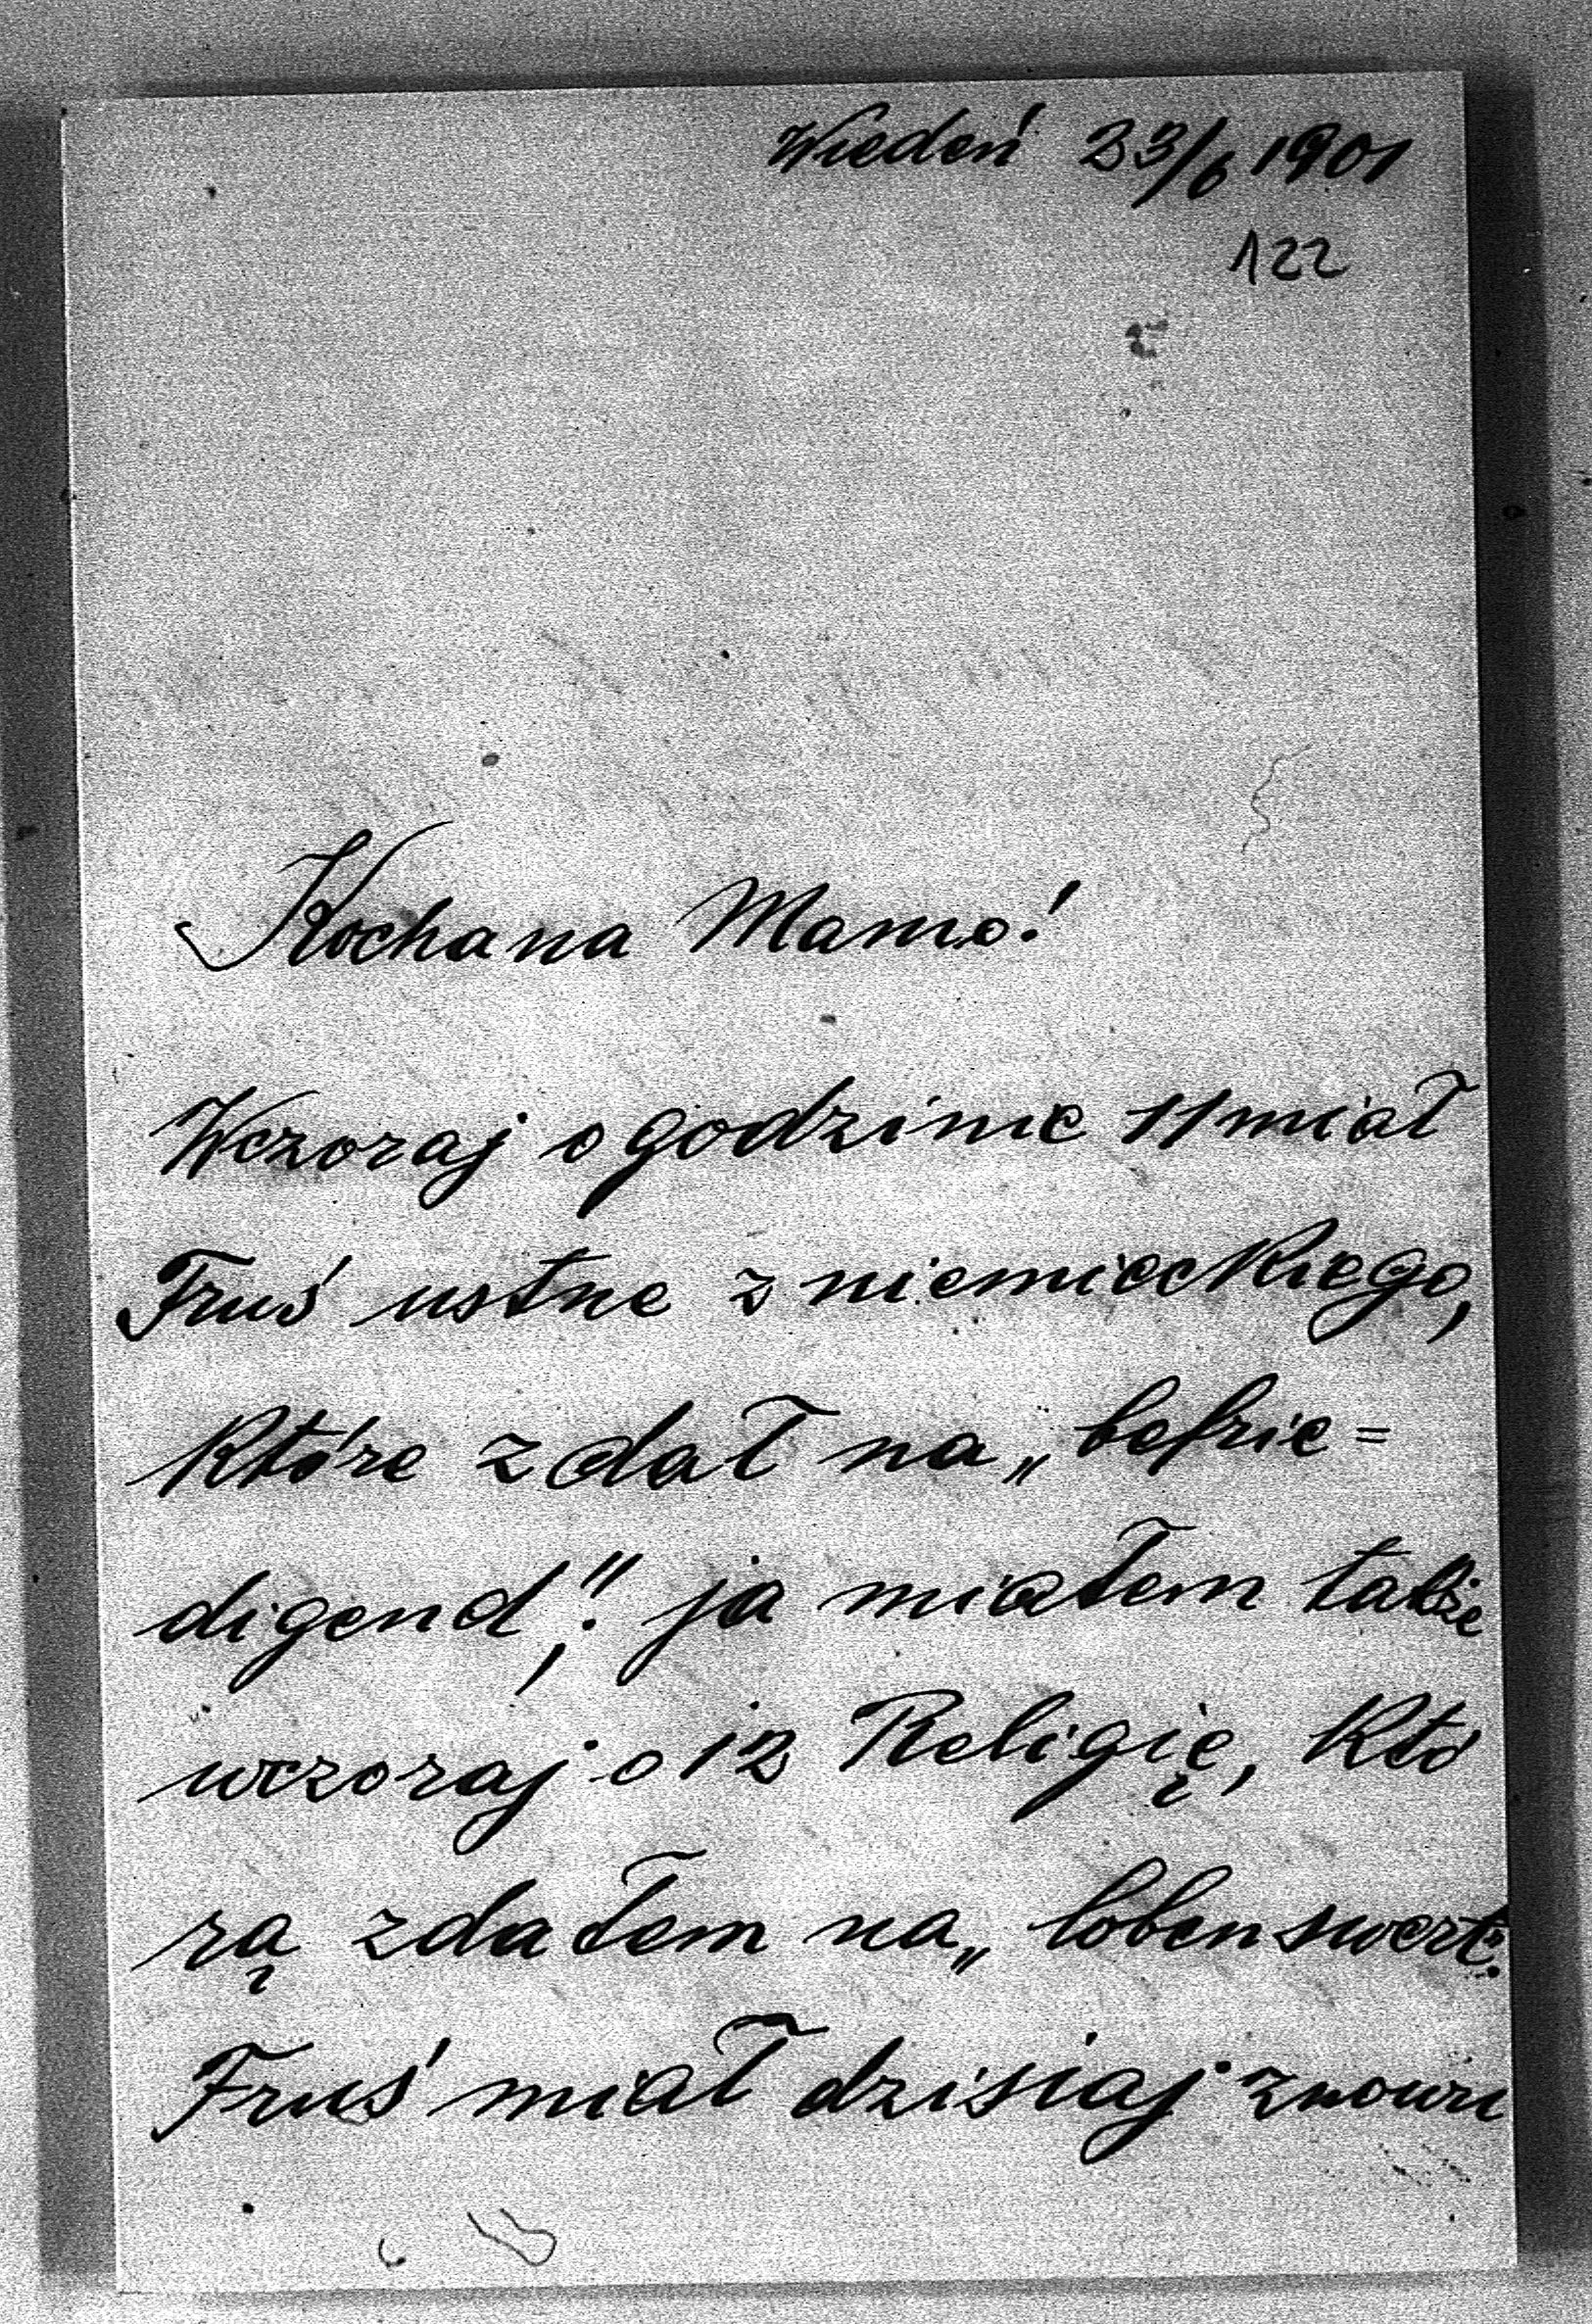 Wiedeń 23/6 1901
122
Kochana Mamo!
Wczoraj o godzinie 11 miał
Fruś ustne z niemieckiego,
które zdał na „befrie=
digend", ja miałem także
wczoraj o 12 Religię, któ
rą zdałem na „lobenswert".
Fruś miał dzisiaj znowu